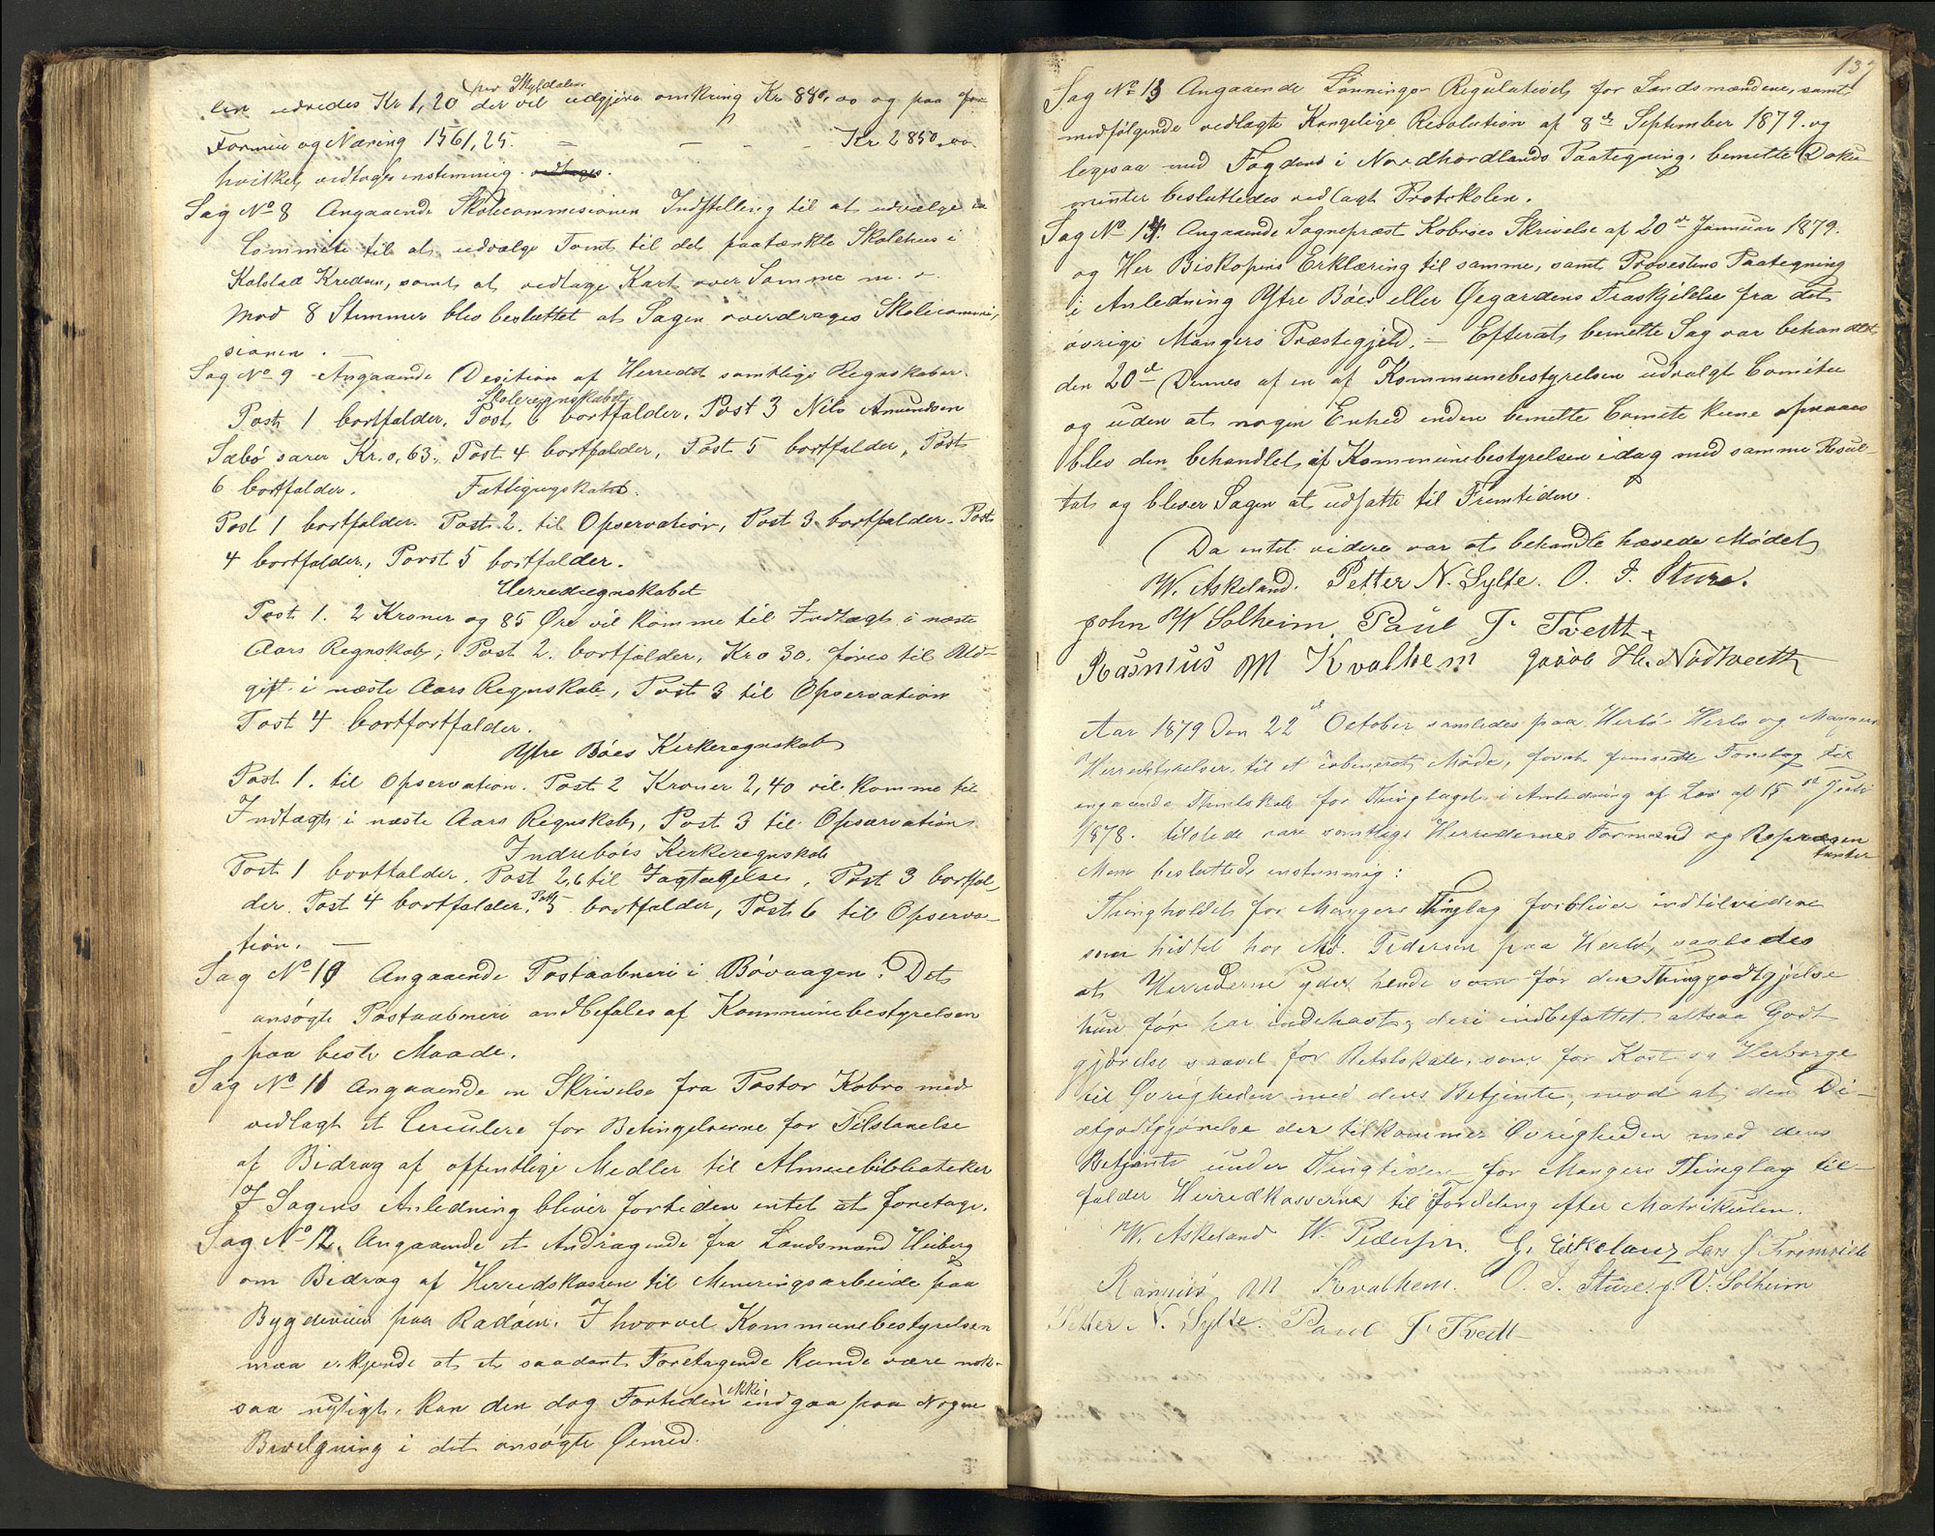 len udredes Kr 1,20 per Skyldaler der vil udgjøre omkring Kr 880,00 og paa
Formue og Næring 1561,25. – – – Kr 2850,00.
hvilket vedtoges enstemmig.
Sag No 8 Angaaende Skolecommisionen Indstilling til at udvælge en
Commite til at udvælge Tomt til det paatænkte Skolehus i
Kolstad Kredsen, samt at vedtage Kart over Samme m. v
Mod 8 Stemmer blev besluttet at Sagen overdrages Skolecommi,
sionen.
Sag No 9 Angaaende Desition af Herredets samtlige Regnskaber.
Skoleregnskabet
Post 1 bortfalder, Post 6 bortfalder, Post 3 Nils Amundsen
Sæbø svarer Kr. 0,63, Post 4 bortfalder, Post 5 bortfalder, Post
6 bortfalder. Fattigregnskabet.
Post 1 bortfalder. Post 2. til Opservation, Post 3 bortfalder. Post
4 bortfalder, Porst 5 bortfalder.
Herredregnskabet
Post 1. 2 Kroner og 85 Øre vil komme til Indtægt i næste
Aars Regnskab, Post 2. bortfalder, Kr 0 30. føres til Ud-
gift i næste Aars Regnskab, Post 3 til Opservation
Post 4 bortfortfalder.
Ytre Bøes Kirkeregnskab
Post 1. til Opservation. Post 2 Kroner 2,40 vil komme til
Indtægt i næste Aars Regnskab, Post 3 til Opservation
Indrebøes Kirkeregnskab
Post 1 bortfalder. Post 2, 6 til Iagtagelse, Post 3 bortfal-
der. Post 4 bortfalder, Post 5 bortfalder, Post 6 til Opserva-
tion. –
Sag No 10 Angaaende Postaabneri i Bøvaagen. Det
ansøgte Postaabneri andbefales af Kommunebestyrelsen
paa beste Maade.
Sag No 11 Angaaende en Skrivelse fra Pastor Kobro med
vedlagt et Cerculere for Betingelserne for Tilstaaelse
af Bidrag af offentlige Medler til Almuebibliateker
I Sagens Anledning bliver fortiden intet at foretage.
Sag No 12. Angaaende et Andragende fra Landsmand Heiberg
om Bidrag af Herredskassen til Mineringsarbeide paa
Bygdeveien paa Radøen. I hvorvel Kommunebestyrelsen
maa erkjende at et saadant Foretagende kunde være nok-
saa nytigt, kan den dog Fortiden ikke indgaa paa Nogen
Bevilgning i det ansøgte Øiemed.
137
Sag No 13 Angaaende Lønnings Regulativet for Landsmændene, samt
medfølgende vedlagte Kongelige Resolution af 8de September 1879. og
legesaa med Fogdens i Nordhordlands Paategning. bemelte Doku
menter besluttedes vedlagt Protokolen.
Sag No 14. Angaaende Sognepræst Kobroes Skrivelse af 20de Januar 1879.
og Her Biskopens Erklæring til samme, samt Provestens Paategning
i Anledning Ytre Bøes eller Øegardens Fraskjillelse fra det
øvrige Mangers Præstegjeld. – Efterat bemelte Sag var behandlet
den 20de Dennes af en af Kommunebestyrelsen udvalgt Comitee
og uden at nogen Enhed inden bemelte Comite kune opnaaes
blev den behandlet af Kommunebestyrelsen idag med samme Resul-
tat og bliver Sagen at udsatte til Fremtiden.
Da intet videre var at behandle hævede Mødet
W. Askeland. Petter N. Sylte. O. I. Sture.
John W Solheim Paul J. Tvedt
Rasmus M Kvalhem Jacob H. Nødtvedt
Aar 1879 Den 22de October samledes paa Herlø Herlø og Mangers
Herredstyrelser til et Møde, for at Forslag til
angaaende Thinlokale for Thinglaget i Anledning af Lov af 15de Juni
1878. tilstede vare samtlige Herredernes Formænd og Repræsen
tanter
Man besluttede enstemmig:
Thingholdet for Mangers Thinglag forbliver indtil videre
som hidtil hos Md. Pedersen paa Herlø, saaledes
at Herrederne yder hende som før den Thinggodtgjørelse
hun før har indehavt, deri indbefattet altsaa Godt
gjørelse saavel for Retslokale, som for Kost og Herberge
til Øvrigheden med dens Betjente, mod at den Di-
ætgodtgjørelse der tilkommer Øvrigheden med dens
Betjente under Thingtiden for Mangers Thinglag til-
falder Herredkasserne til Fordeling efter Matrikulen.
W. Askeland W. Pedersen. G. Eikeland Lars J
Rasmus M Kvalhem. O. I. Sture. J. W. Solheim
Petter N. Sylte. Paul J. Tvedt